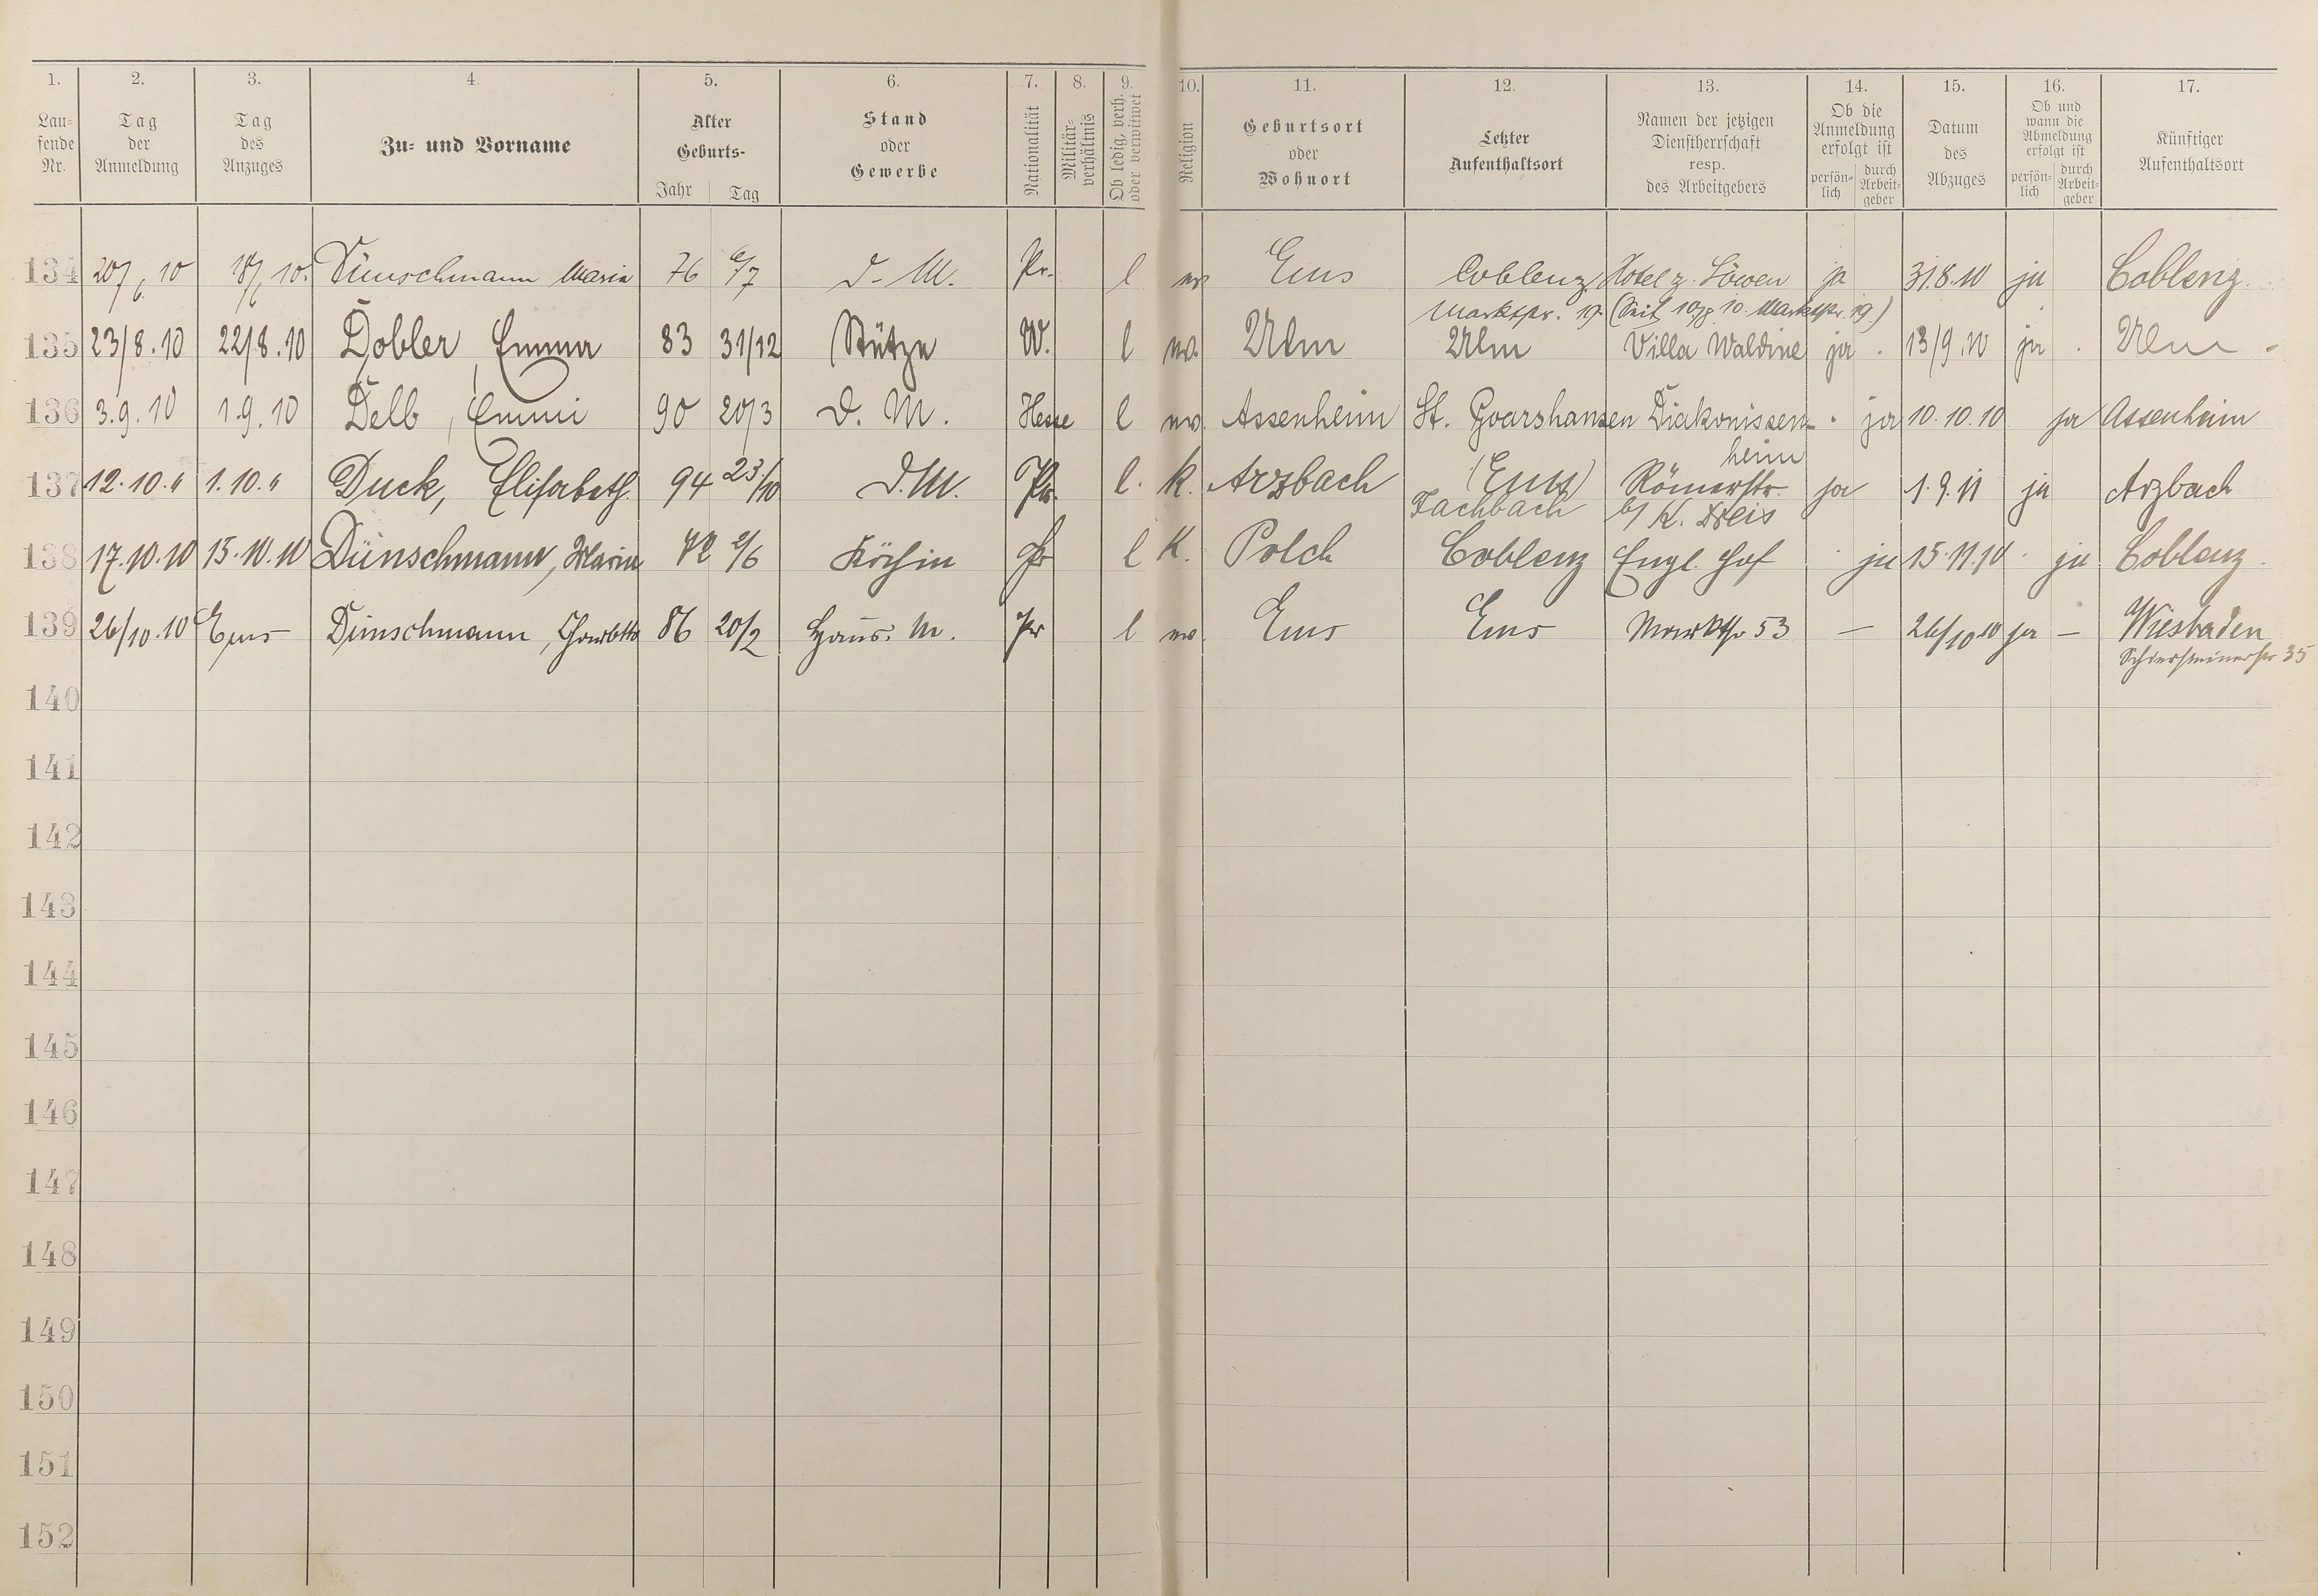 1. 2. 3. 4. 5. 6. 7. 8. 9. 10. 11. 12. 13. 14. 15. 16. 17.
Lau-
fende
Nr.
Tag
der
Anmeldung
Tag
des
Anzuges
Zu- und Vorname
Alter
Geburts-
Jahr Tag
Stand
oder
Gewerbe
Nationalität
Militär-
verhältnis
Ob ledig, verh.
oder verwitwet
Religion
Geburtsort
oder
Wohnort
Letzter
Aufenthaltsort
Namen der jetzigen
Dienstherrschaft
resp.
des Arbeitgebers
Ob die
Anmeldung
erfolgt ist
persön-
lich
durch
Arbeit-
geber
Datum
des
Abzuges
Ob und
wann die
Abmeldung
erfolgt ist
persön-
lich
durch
Arbeit-
geber
Künftiger
Aufenthaltsort
134 20/6 10 18/6 10. Dünschmann Maria 76 6/7 D. M. Pr. l ev Ems Coblenz Hotel z. Löwen ja 31.8.10 ja Coblenz.
Marktstr. 19. (Seit 10/8 10. Marktstr. 19)
135 23/8.10 22/8.10 Dobler, Emma 83 31/12 Stütze W. l ev. Ulm Ulm Villa Waldine ja . 13/9.10 ja . Ulm -
136 3.9.10 1.9.10 Delb, Emmi 90 20/3 D. M. Hesse l ev. Assenheim St. Goarshausen Diakonissen- . ja 10.10.10 ja Assenheim
heim
137 12.10." 1.10." Duck, Elisabeth 94 23./10 D.M. Pr. l. k. Arzbach (Ems) Römerstr. ja 1.9.11 ja Arzbach
Fachbach b/ K. Dreis
138 17.10.10 15.10.10 Dünschmann, Maria 72 2/6 Köchin Pr l K. Polch Coblenz Engl. Hof . ja 15.11.10 . ja Coblenz.
139 26/10.10 Ems Dünschmann, Charlotte 86 20/2 Haus. M. Pr l ev. Ems Ems Marktstr 53 — 26/10 10 ja — Wiesbaden
Schiersteinerstr 35
140
141
142
143
144
145
146
147
148
149
150
151
152